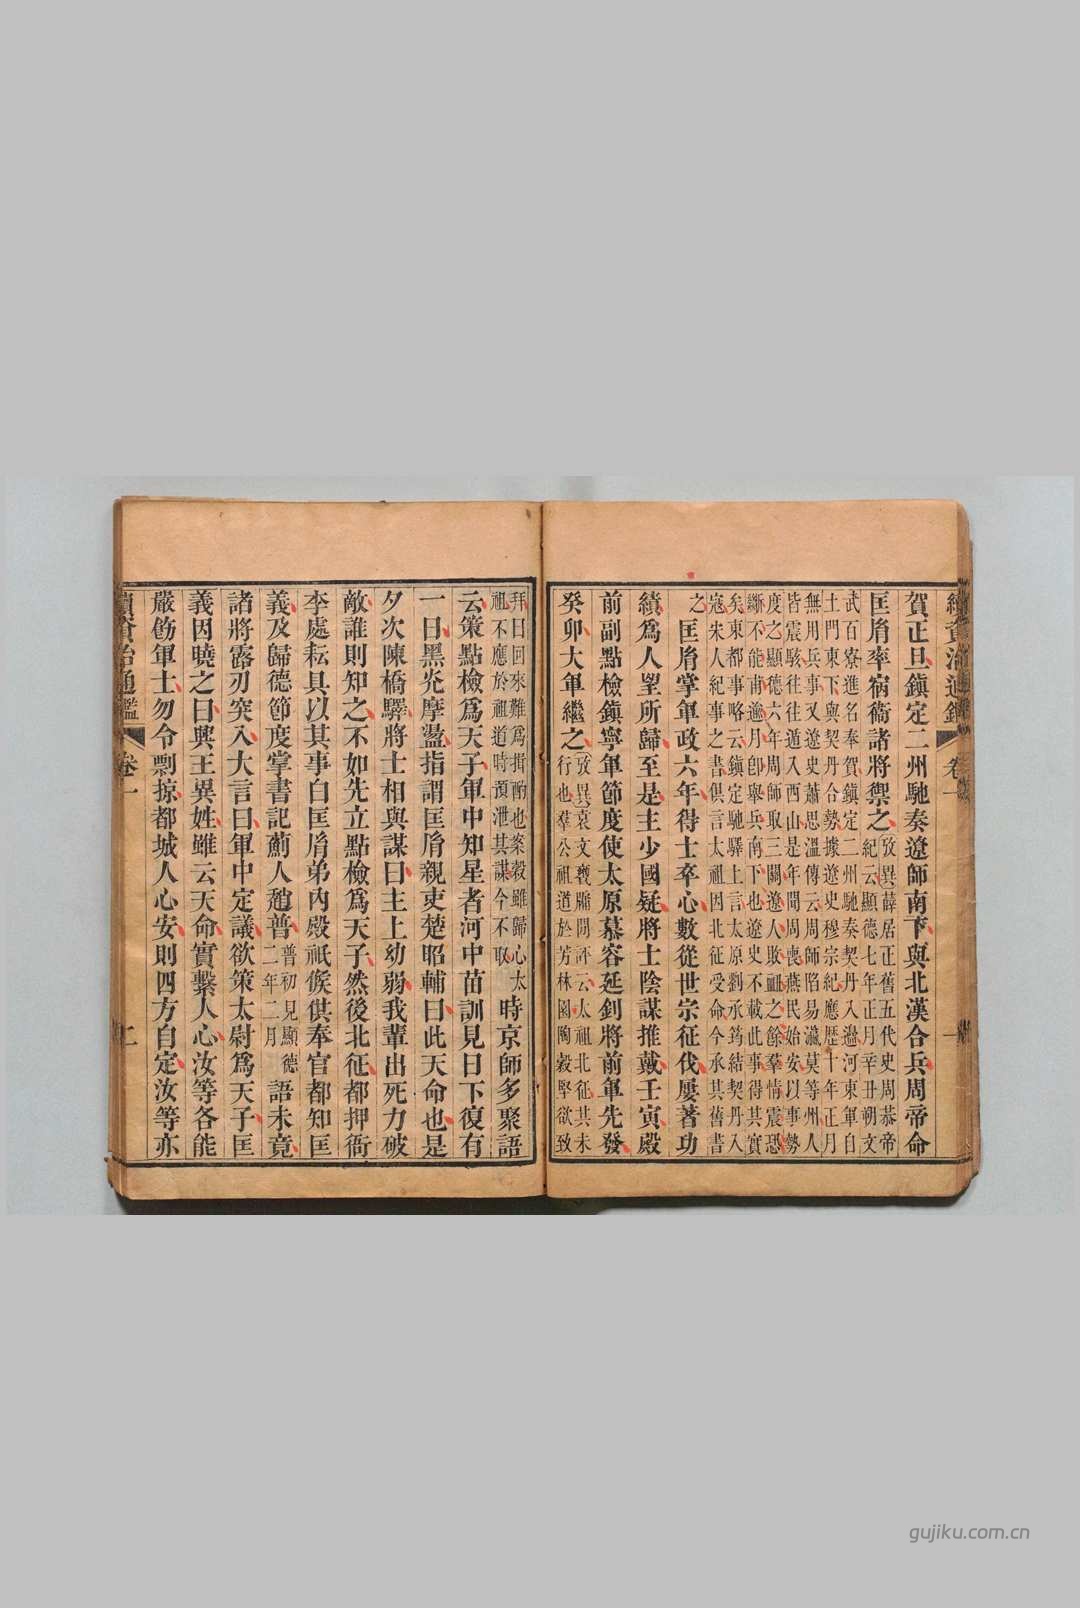 賀正旦鎮定二州馳奏遼師南下與北漢合兵周帝命
匡胤率宿衞諸將禦之攷異薛居正舊五代史周恭帝紀云顯德七年正月辛丑朔文
武百寮進名奉賀鎮定二州馳奏契丹入邊河東軍自土門東下與契丹合勢據遼史穆宗紀應歷十年正月
無用兵事又遼史蕭思溫傳云周師陷易瀛莫等州人皆震駭往往遁入西山是年間周喪燕民始安以事勢
度之顯德六年周師取三關遼人敗衂之餘羣情震恐斷不能甫逾月卽舉兵南下也遼史不載此事得其實
矣東都事略云鎮定馳驛上言太原劉承鈞結契丹入寇宋人紀事之書俱言太祖因北征受命今承其舊書
之　匡胤掌軍政六年得士卒心數從世宗征伐屢著功
績爲人望所歸至是主少國疑將士陰謀推戴壬寅殿
前副點檢鎮寧軍節度使太原慕容延釗將前軍先發
癸卯大軍繼之攷異袁文甕牖閒評云太祖北征其未行也羣公祖道於芳林園陶穀堅欲致
續資治通鑑　卷一　一
拜曰回來難爲揖酌也案穀雖歸心太祖不應於祖道時預泄其謀今不取時京師多聚語
云策點檢爲天子軍中知星者河中苗訓見日下復有
一日黑光摩盪指謂匡胤親吏楚昭輔曰此天命也是
夕次陳橋驛將士相與謀曰主上幼弱我輩出死力破
敵誰則知之不如先立點檢爲天子然後北征都押衙
李處耘具以其事白匡胤弟內殿祇候供奉官都知匡
義及歸德節度掌書記薊人趙普普初見顯德二年二月語未竟
諸將露刃突入大言曰軍中定議欲策太尉爲天子匡
義因曉之曰興王異姓雖云天命實繫人心汝等各能
嚴飭軍士勿令剽掠都城人心安則四方自定汝等亦
續資治通鑑　卷一　二
gujiku.com.cn